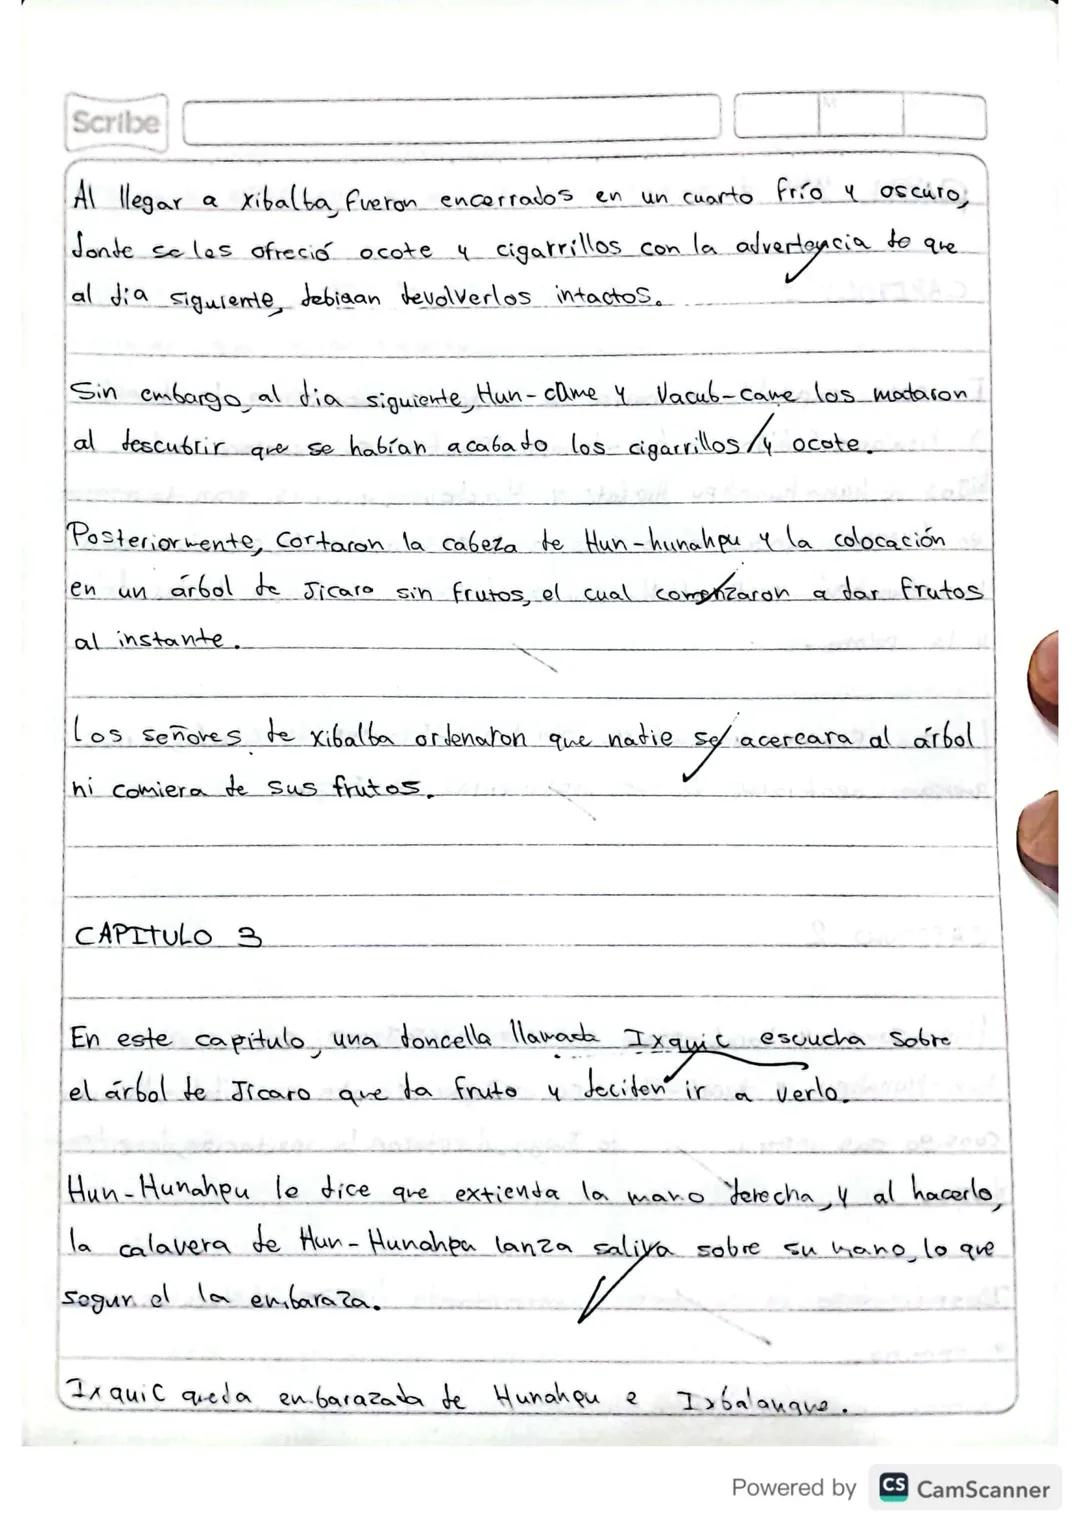 Scribe
Al llegar a Xibalba, fueron encerrados en un cuarto frío y oscuro,
donde se les ofreció ocote y cigarrillos con la advertencia de que
al dia siguiente, debiaan devolverlos intactos.
Sin embargo, al dia siguiente, Hun-came y Vacub-Came los mataron
al descubrir que se habían acabado los cigarrillos y ocote.
Posteriormente, cortaron la cabeza de Hun-hunahpu y la colocación
en un árbol de Jicaro sin frutos, el cual comenzaron a dar frutos
al instante.
Los señores de Xibalba ordenaron que nadie se acercara al árbol
ni comiera de sus frutos.
CAPITULO 3
En este capitulo, una doncella llamada Ixquic escucha sobre
el árbol de Jícaro que da fruto y deciden ir a verlo.
Hun-Hunahpu le dice que extienda la mano derecha, y al hacerlo,
la calavera de Hun-Hunahpu lanza saliva sobre su mano, lo que
segun el la embaraza.
Ixquic queda embarazada de Hunahpu e Ixbalanque.
Powered by CS CamScanner